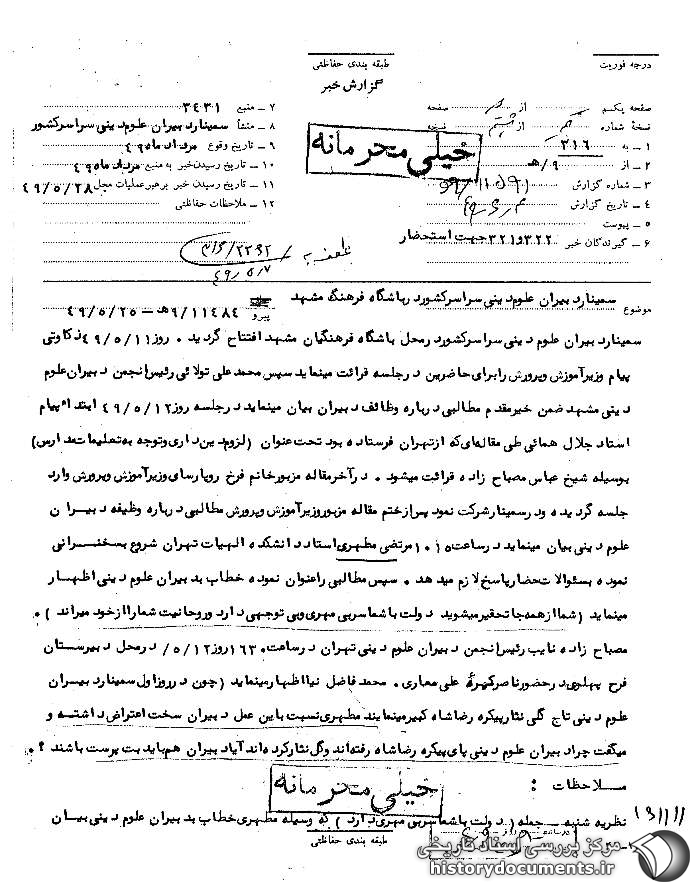 درجه فوریت
طبقه بندی حفاظتی
گزارش خبر
صفحه یکم از صفحه
نسخهٔ شماره از نسخه
۱ ـ به ۳۱۶
۲ ـ از ۹/هـ
۳ ـ شماره گزارش
۴ ـ تاریخ گزارش
۵ ـ پیوست
۶ ـ گیرندگان خبر ۳۲۲ و ۳۲۱ جهت استحضار
۷ ـ منبع ۳۴۳۱
۸ ـ منشأ سمینار دبیران علوم دینی سراسر کشور
۹ ـ تاریخ وقوع مرداد ماه ۴۹
۱۰ ـ تاریخ رسیدن خبر به منبع مرداد ماه ۴۹
۱۱ ـ تاریخ رسیدن خبر برهبر عملیات محل ۴۹/۵/۲۸
۱۲ ـ ملاحظات حفاظتی
خیلی محرمانه
موضوع سمینار دبیران علوم دینی سراسر کشور در باشگاه فرهنگ مشهد
پیرو ۹/۱۱۴۸۴هـ ـ ۴۹/۵/۲۵
سمینار دبیران علوم دینی سراسر کشور در محل باشگاه فرهنگیان مشهد افتتاح گردید . روز ۴۹/۵/۱۱ ذکاوتی
پیام وزیر آموزش و پرورش را برای حاضرین در جلسه قرائت مینماید سپس محمد علی تولائی رئیس انجمن دبیران علوم
دینی مشهد ضمن خیر مقدم مطالبی درباره وظائف دبیران بیان مینماید در جلسه روز ۴۹/۵/۱۲ ابتداء پیام
استاد جلال همائی طی مقاله‌ای که از تهران فرستاده بود تحت عنوان (لزوم دین داری و توجه به تعلیمات مدارس)
بوسیله شیخ عباس مصباح زاده قرائت میشود . در آخر مقاله مزبور خانم فرخ رو پارسای وزیر آموزش و پرورش وارد
جلسه گردیده و در سمینار شرکت نمود پس از ختم مقاله مزبور وزیر آموزش و پرورش مطالبی درباره وظیفه دبیران
علوم دینی بیان مینماید در ساعت ۱۰۱۵ مرتضی مطهری استاد دانشکده الهیات تهران شروع بسخنرانی
نموده بسئوالات حضار پاسخ لازم میدهد . سپس مطالبی را عنوان نموده خطاب به دبیران علوم دینی اظهار
مینماید (شما از همه جا تحقیر میشوید دولت با شما سر بی مهری و بی توجهی دارد و روحانیت شما را از خود میراند ) .
مصباح زاده نایب رئیس انجمن دبیران علوم دینی تهران در ساعت ۱۶۳۰ روز ۵/۱۲/ در محل دبیرستان
فرح پهلوی در حضور ناصر کهربا علی معماری . محمد فاضل نیا اظهار مینماید (چون در روز اول سمینار دبیران
علوم دینی تاج گلی نثار پیکره رضا شاه کبیر مینمایند مطهری نسبت باین عمل دبیران سخت اعتراض داشته و
میگفت چرا دبیران علوم دینی پای پیکره رضا شاه رفته‌اند و گل نثار کرده‌اند آیا دبیران هم باید بت پرست باشند ؟ .
ملاحظات :
خیلی محرمانه
نظریه شنبه ـ جمله (دولت با شما سر بی مهری دارد ) که وسیله مطهری خطاب به دبیران علوم دینی بیان
طبقه بندی حفاظتی
مرکز بررسی اسناد تاریخی
historydocuments.ir